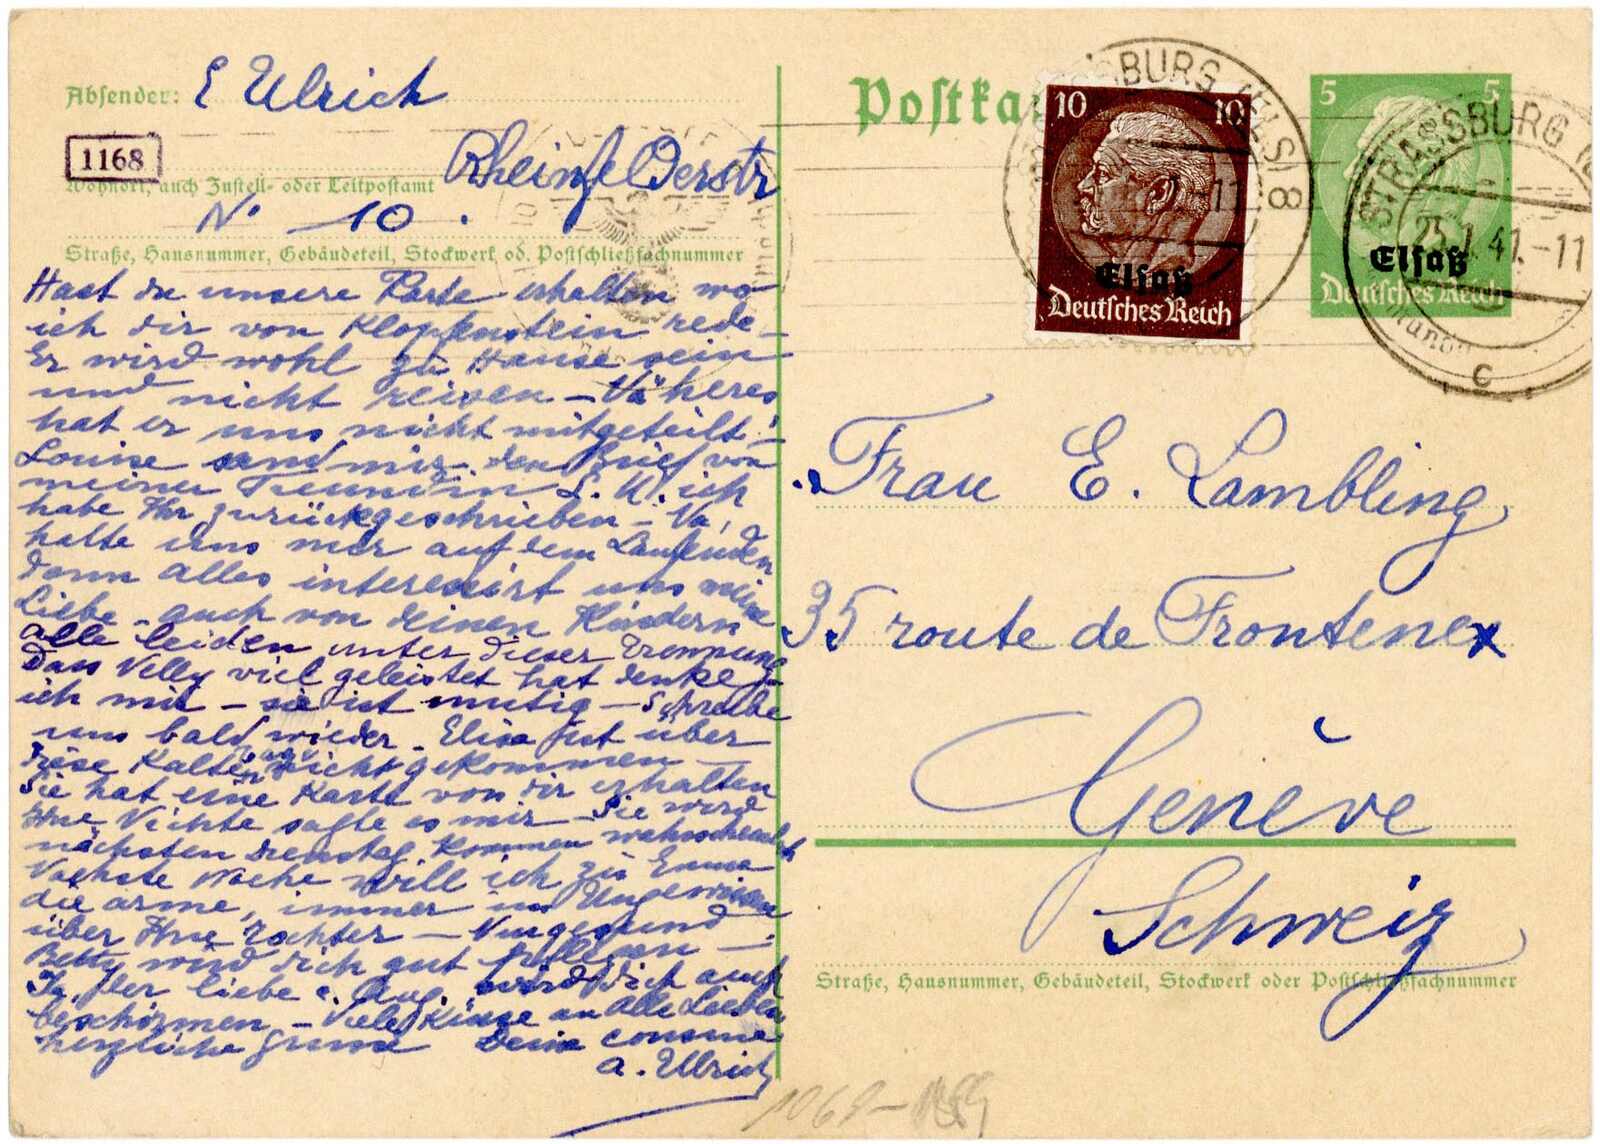 Absender: E Ulrich
1168
Rheinfelderstr
Wohnort, auch Zustell- oder Leitpostamt
N° 10.
Straße, Hausnummer, Gebäudeteil, Stockwerk od. Postschließfachnummer
Hast du unsere Karte erhalten wo
ich dir von Klopfenstein rede—
Er wird wohl zu Hause sein
und nicht reisen – Näheres
hat er uns nicht mitgeteilt!
Louise sand mir den Brief von
meiner Freundin L. W. ich
habe Ihr zurückgeschrieben –
halte uns mer auf dem Laufenden
dann alles interessirt uns meine
Liebe – auch von deinen Kindern
alle leiden unter dieser Trennung
Dass Nelly viel geleistet hat denke
ich mir – sie ist mutig – Schreibe
uns bald wieder. Elisa ist über
diese Kälte nicht gekommen –
Sie hat eine Karte von dir erhalten
Ihre Nichte sagte es mir – Sie wird
nächsten Dienstag kommen wahrscheinlich
Nächste Woche will ich zu Emma
die arme, immer im Ungewissen
über Ihre Tochter –
Betty wird dich gut pflegen –
Ja, der liebe wird dich auch
beschirmen – Viele Küsse an alle Lieben
herzliche Grüsse Deine cousine
a. Ulrich
Postka
10 10
Elsaß
Deutsches Reich
SSBURG (ELS) 8
5 5
Elsaß
Deutsches Reich
STRASSBURG
25.1.41.-11
c
Frau E. Lambling
35 route de Frontenex
Genève
Schweiz
Straße, Hausnummer, Gebäudeteil, Stockwerk oder Postschließfachnummer